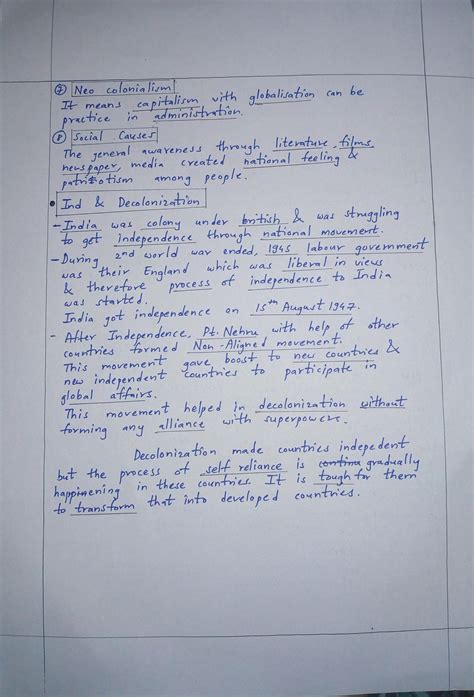 ⑦ Neo colonialism
It means capitalism with globalisation can be
practice in administration.
⑧ Social Causes
The general awareness through literature, films,
newspaper, media created national feeling &
patriotism among people.
• Ind & Decolonization
- India was colony under british & was struggling
to get independence through national movement.
- During 2nd world war ended, 1945 labour government
was their England which was liberal in views
& therefore process of independence to India
was started.
India got independence on 15th August 1947.
- After Independence, Pt. Nehru with help of other
countries formed Non-Aligned movement.
This movement gave boost to new countries &
new independent countries to participate in
global affairs.
This movement helped in decolonization without
forming any alliance with superpowers.
Decolonization made countries indepedent
but the process of self reliance is continu gradually
happinening in these countries. It is tough for them
to transform that into developed countries.